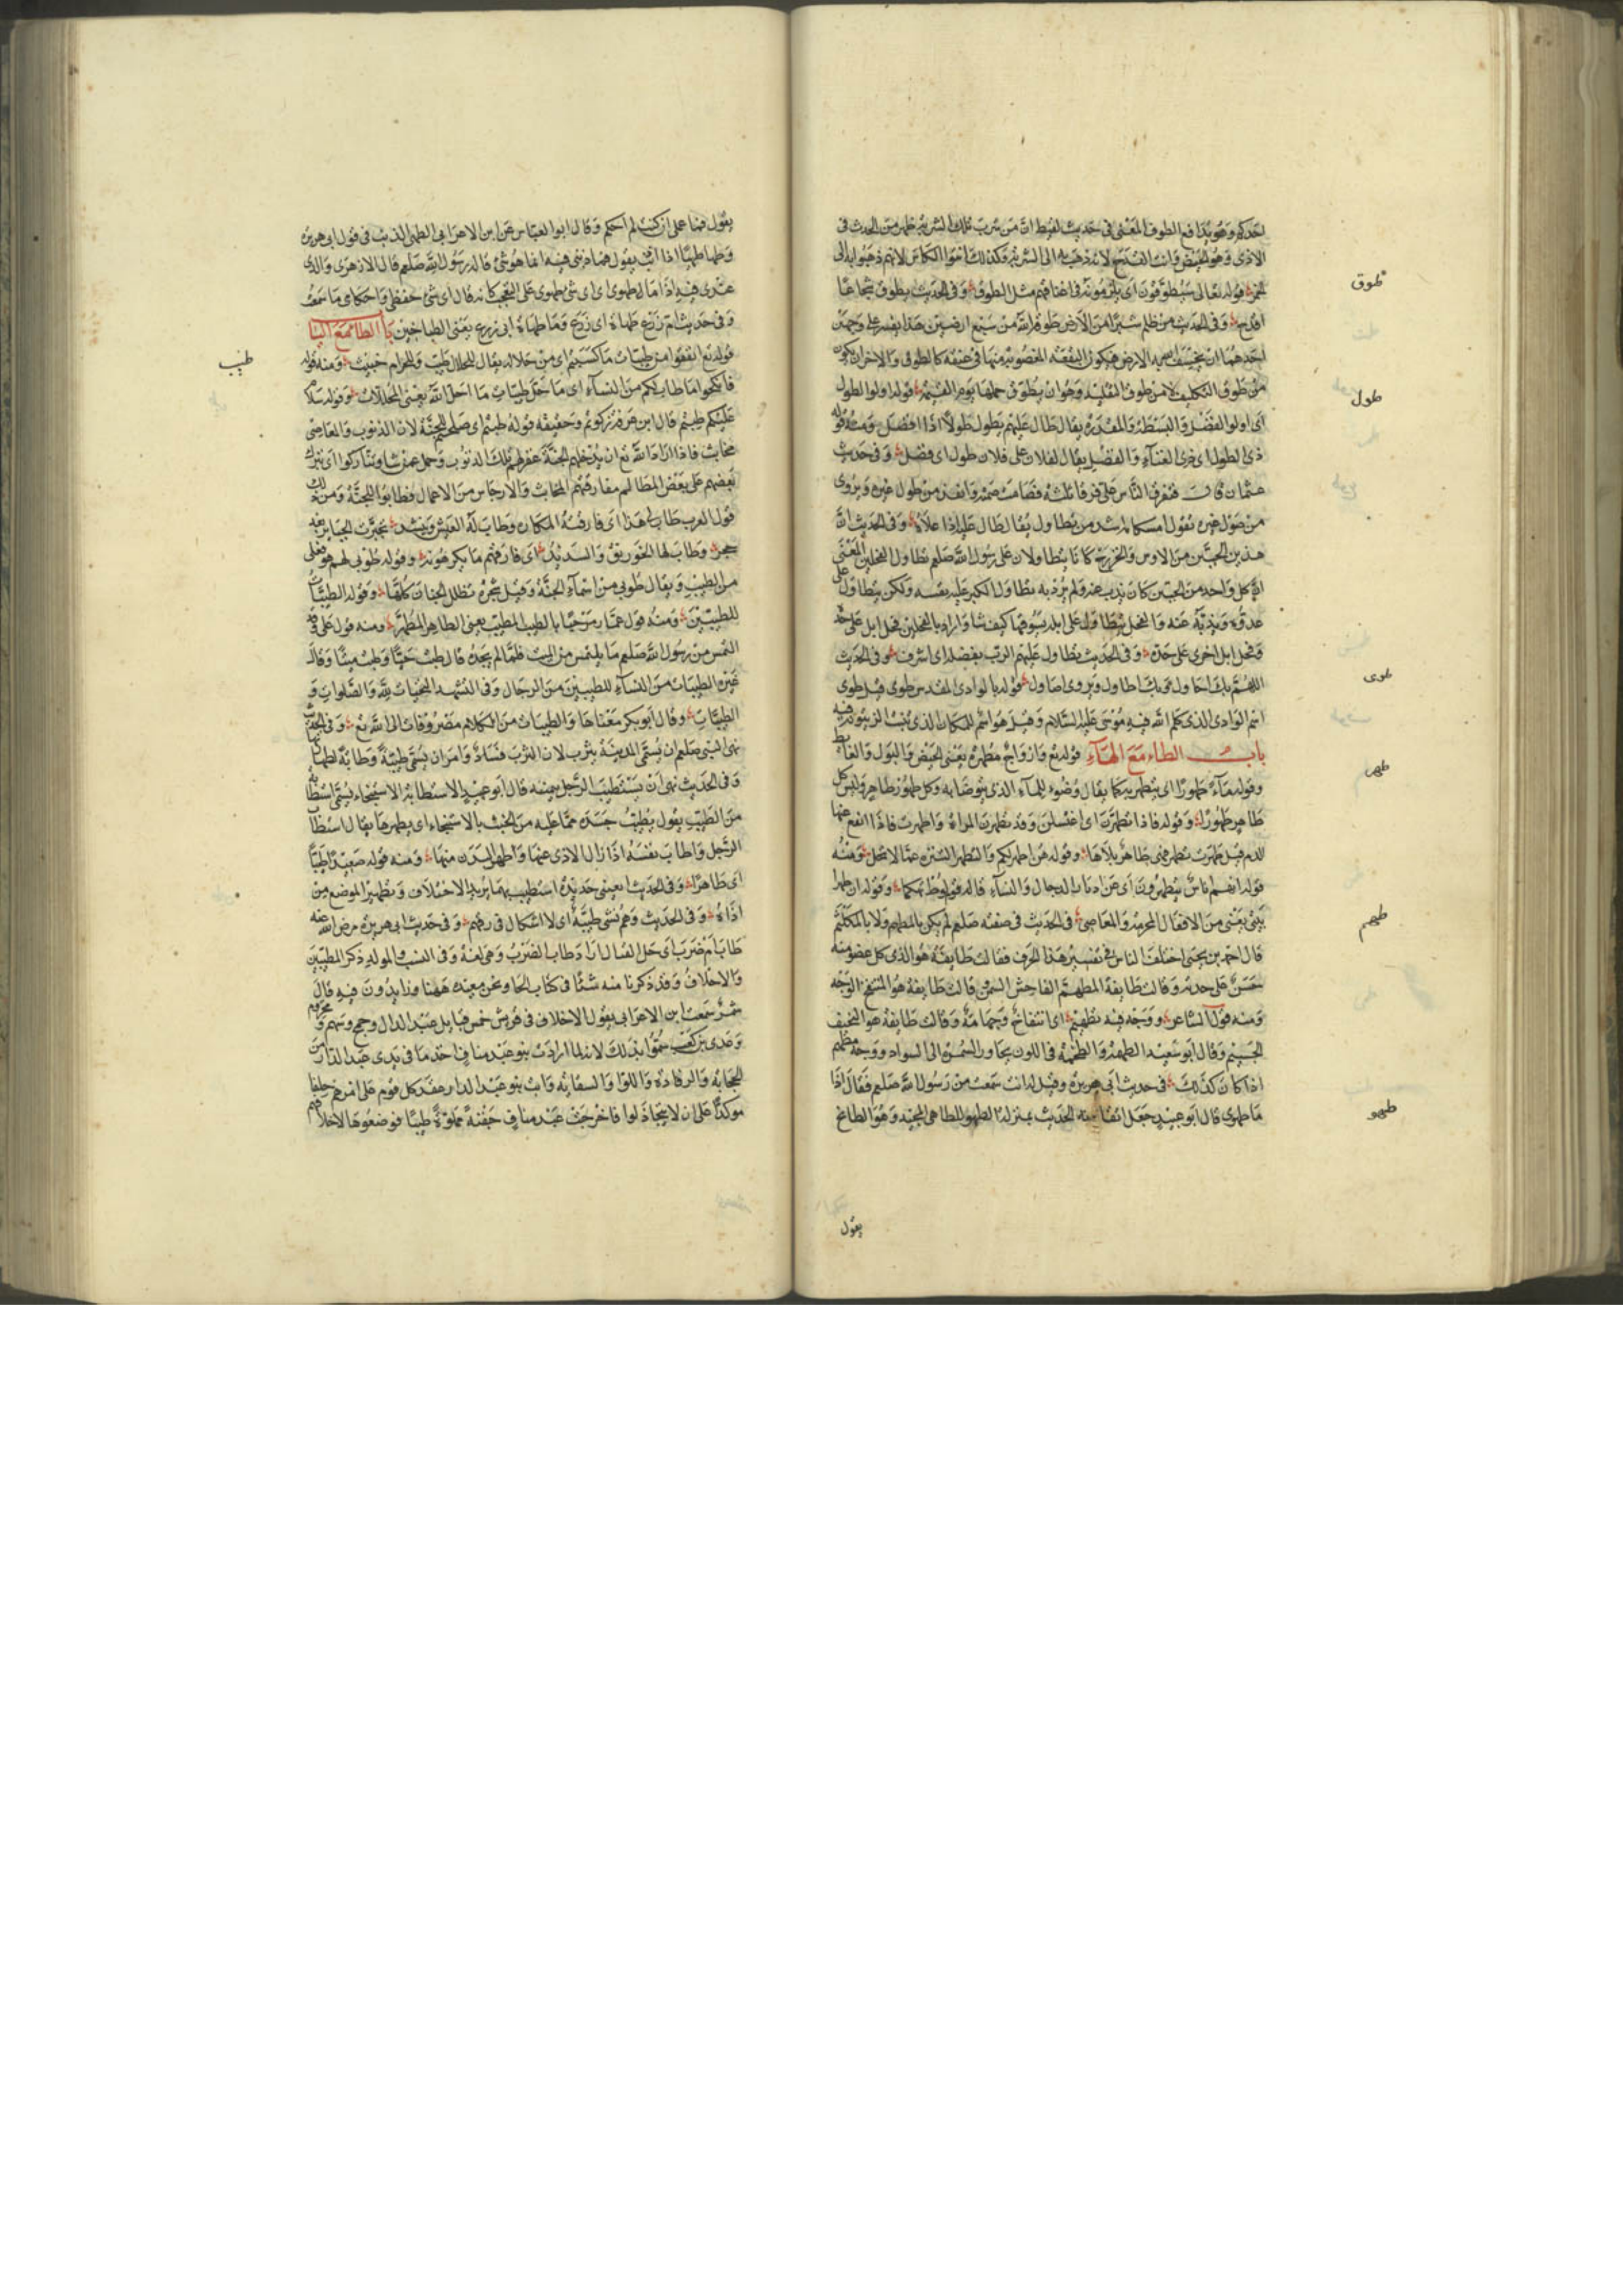 احدكم وهو يدافع الطوف المعنى في حديث لقيط ان من شرب تلك الشربة طهر من الحدث في
الاذى وهو الحيض وانث القدح لانه ذهب به الى الشربة وكذلك انثوا الكاس لانهم ذهبوا به الى
الخمر قوله تعالى سيطوقون اى يلزمونه في اعناقهم مثل الطوق وفي الحديث يطوق شجاعا
اقرع وفي الحديث من ظلم شبرا من الارض طوقه الله من سبع ارضين هذا يفسر على وجهين
احدهما ان يخسف الله به الارض فيكون البقعة المغصوبة منها في عنقه كالطوق والاخر ان يكون
من طوق التكليف لا من طوق التقليد وهو ان يطوق حملها يوم القيمة قوله اولوا الطول
اى اولوا الفضل والبسطة والمقدرة يقال طال عليهم يطول طولا اذا افضل ومنه قوله
ذى الطول اى ذى الغناء والفضل يقال لفلان على فلان طول اى فضل وفي حديث
عثمان قال فتفرق الناس على فرقا ثلثة فصامت صمته انفذ من طول غيره ويروى
من صول غيره يقول امساكه اشد من تطاول يقال طال عليه اذا علاه وفي الحديث ان
هذين الحيين من الاوس والخزرج كانا يتطاولان على رسول الله صلعم تطاول الفحلين المعنى
ان كل واحد من الحيين كان يذب عنه ولم يرد به تطاول الكبر عليه نفسه ولكن يتطاول على
عدوه ويذبه عنه والفحل يتطاول على ابله يسوقها كيف شا واراد بالفحلين فحل ابل على حدة
وفحل ابل اخرى على حدة وفي الحديث تطاول عليهم الرب بفضله اى اشرف وفي الحديث
اللهم بك احاول وبك اطاول ويروى اصاول قوله بالوادى المقدس طوى قيل طوى
اسم الوادى الذى كلم الله فيه موسى عليه السلام وقيل هو اسم للمكان الذى ينبت الزيتون فيه
باب الطاء مع الهاء قوله تع وازواج مطهرة يعنى الحيض والبول والغايط
وقوله ماء طهورا اى يتطهر به كما يقال وضوء للماء الذى يتوضا به وكل طهور طاهر وليس كل
طاهر طهورا وقوله فاذا تطهرن اى اغتسلن وقد تطهرت المراة واطهرت فاذا انقع عنها
الدم قيل طهرت تطهر فهى طاهر بلا ها وقوله هن اطهر لكم والتطهر التنزه عما لا يحل ومنه
قوله انهم اناس يتطهرون اى عن ادبار الرجال والنساء قاله تهكما وقوله ان طهرا
بيتى يعنى من الافعال المحرمة والمعاصى في الحديث في صفته صلعم لم يكن بالمطهم ولا بالمكلثم
قال احمد بن يحيى اختلف الناس في تفسير هذا الحرف فقالت طايفة هو الذى كل عضو منه
حسن على حدته وقالت طايفة المطهم الفاحش السمن وقالت طايفة هو المنتفخ الوجه
ومنه قول الشاعر ووجه فيه تطهيم اى انتفاخ وجهامة وقالت طايفة هو النحيف
الجسيم وقال ابو سعيد الطهمة والطخمة في اللون يجاوز السمرة الى السواد ووجه مطهم
اذا كان كذلك في حديث ابى هريرة وقيل له انت سمعت من رسول الله صلعم فقال اذا
ما طهوى قال ابو عبيد جعل اتقا نه الحديث بمنزلة الطهو للطاهى المجيد وهو الطابخ
يقول
طوق
طول
طوى
طهر
طهم
طهو
يقول فما عملى ان كنت لم احكم وقال ابو العباس عن ابن الاعرابى الطهى الذنب في قول ابى هريرة
وطها طهيا اذا اذنب يقول فما ذنبى فيه انما هو شئ قاله رسول الله صلعم قال الازهرى والذى
عندى فيه اذا ما طهوى اى اى شئ طهوى على التعجب كانه قال اى شئ حفظى واحكامى ما سمعت
وفي حديث ام زرع طهاة ابى زرع وما طهاة ابى زرع يعنى الطباخين باب الطاء مع الياء
قوله تع انفقوا من طيبات ما كسبتم اى من حلاله يقال للحلال طيب وللحرام خبيث ومنه قوله
فانكحوا ما طاب لكم من النساء اى ما حل طيبات ما احل الله يعنى المحللات وقوله سلام
عليكم طبتم قال ابن عرفة زكوتم وحقيقة قوله طبتم اى صلحتم للجنة لان الذنوب والمعاصى
مخابث فاذا اراد الله تع ان يدخلهم الجنة غفر لهم تلك الذنوب وحمل عمن شا وتتاركوا اى ترك
بعضهم على بعض المظالم مفارقتهم المخابث والارجاس من الاعمال فطابوا للجنة ومن ذلك
قول العرب طاب لى هذا اى فارقته المكاره وطاب له العيش وينشد تجبرت الجبابر بعد
حجر وطاب لها الخورنق والسدير اى فارقتهم ما يكرهونه وقوله طوبى لهم هو فعلى
من الطيب ويقال طوبى من اسماء الجنة وقيل شجرة تظلل الجنان كلها وقوله الطيبات
للطيبين ومنه قول عمار مرحبا بالطيب المطيب يعنى الطاهر المطهر ومنه قول على وقد
التمس من رسول الله صلعم ما يلتمس من الميت فلما لم يجده قال طبت حيا وطبت ميتا وقال
غيره الطيبات من النساء للطيبين من الرجال وفي التشهد التحيات لله والصلوات و
الطيبات وقال ابو بكر معناها والطيبات من الكلام مصروفات الى الله تع وفي الحديث
نهى النبى صلعم ان يسمى المدينة يثرب لان الثرب فساد وامر ان يسمى طيبة وطابة لطيبها
وفي الحديث نهى ان يستطيب الرجل بيمينه قال ابو عبيد الاستطابة الاستنجاء يسمى استطابة
من الطيب يقول يطيب جسده مما عليه من الخبث بالاستنجاء اى يطهرها يقال استطاب
الرجل واطاب نفسه اذا زال الاذى عنها واطهر البدن منها ومنه قوله صعيدا طيبا
اى طاهرا وفي الحديث ابغينى حديدة استطيب بها يريد الاحتلاق وتطهير الموضع من
اذاه وفي الحديث وهم سبى طيبة اى لا اشكال في رقهم وفي حديث ابى هريرة رضى الله عنه
طاب امضرب اى حل القتال اراد طاب الضرب وهى لغة وفي النسب والمولد ذكر المطيبين
والاحلاف وقد ذكرنا منه شئا في كتاب الحا ونحن معيده ههنا وزايدون فيه قال
شمر سمعت ابن الاعرابى يقول الاحلاف في قريش خمس قبايل عبد الدار وجمح وسهم ومخزوم
وعدى بن كعب سموا بذلك لانه لما ارادت بنو عبد مناف اخذ ما في يدى عبد الدار من
الحجابة والرفادة واللوا والسقاية وابت بنو عبد الدار عقد كل قوم على امرهم حلفا
موكدا على ان لا يتخاذلوا فاخرجت عبد مناف جفنة مملوة طيبا فوضعوها لاحلافهم
طيب